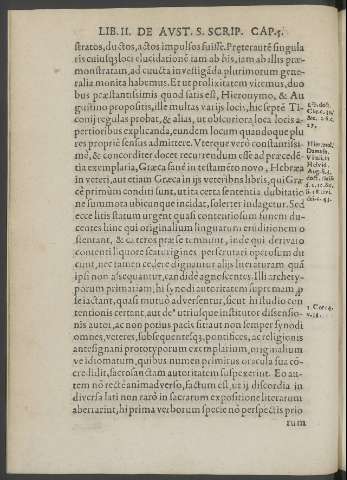 LIB. II. DE AVST. S. SCRIP. CAP. 5.
stratos, ductos, actos impulsos fuisse. Preterautē singula
ris cuiusq; loci elucidationē tam ab his, iam ab illis præ-
monstratam, ad cuncta inuestigāda plurimorum gene-
ralia monita habemus. Et ut prolixitatem vitemus, duo
bus præstantissimis quod satis est, Hieronymo, & Au
gustino propositis, ille multas varijs locis, hic septē Ti-
conij regulas probat, & alias, ut obscuriora loca locis a-
pertioribus explicanda, eundem locum quandoque plu
res propriè sensus admittere. Vterque verò constantissi-
mè, & concorditer docet recurrendum esse ad præcedē-
tia exemplaria, Græca sanè in testamēto nouo, Hebræa
in veteri, aut etiam Græca in ijs veteribus libris, qui Græ-
cè primùm conditi sunt, ut ita certa sententia dubitatio
ne summota ubicunque incidat, solerter indagetur. Sed
ecce litis statum urgent quasi contentiosum funem du-
centes hinc qui originalium linguarum eruditionem o
stentant, & cæteros præ se temnunt, inde qui deriuato
contenti liquore scaturigines perscrutari operosum du
cunt, nec tamen cedere dignantur alijs literaturam quā
ipsi non assequantur, candidè agnoscentes. Illi archety-
porum primariam, hi synodi autoritatem supremam p
se iactant, quasi mutuò aduersentur, sicut hi studio con
tentionis certant, aut de utriusque institutor dissensio-
nis autor, ac non potius pacis sit, aut non semper synodi
omnes, veteres, subsequentesq;, pontifices, ac religionis
antesignani prototyporum exemplarium, originalium
ve idiomatum, quibus numen primitus oracula sua cō-
credidit, sacrosanctam autoritatem suspexerint. Eo au-
tem nō rectè animaduerso, factum est, ut ij discordia in
diuersa lati non rarò in sacrarum expositione literarum
aberrarint, hi prima verborum specie nō perspectis prio
rum
Hieronym.
Damaso.
1. Cor. 4.